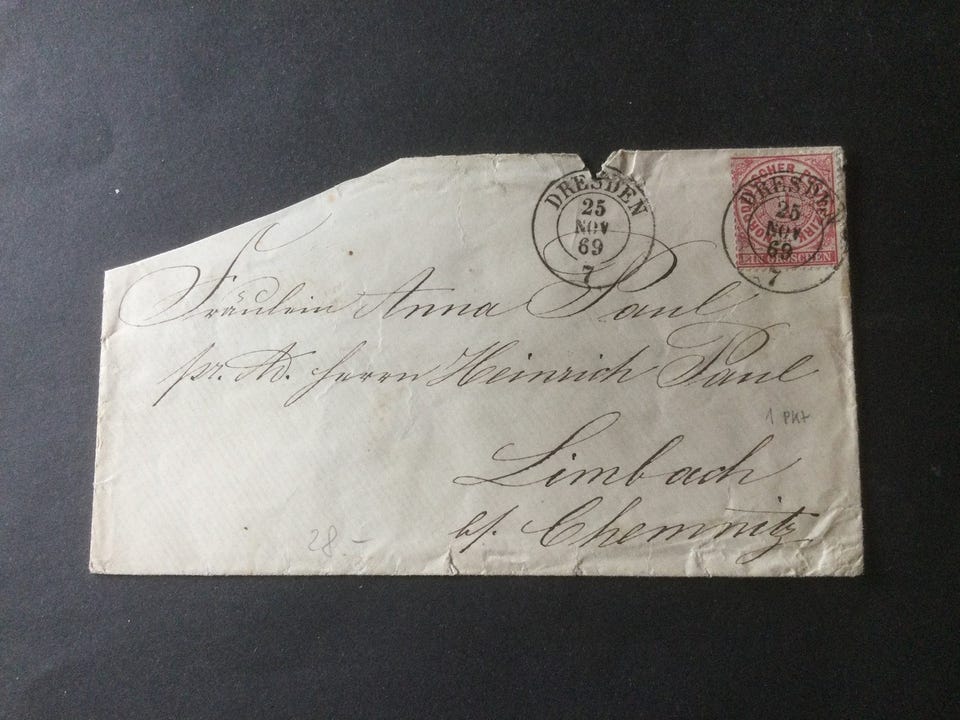 DRESDEN
25
NOV
69
7
NORDDEUTSCHER POSTBEZIRK
EIN GROSCHEN
DRESDEN
25
NOV
69
7
Fräulein Anna Paul
pr. Ad. Herrn Heinrich Paul
1 PKt
Limbach
b/. Chemnitz
28.-